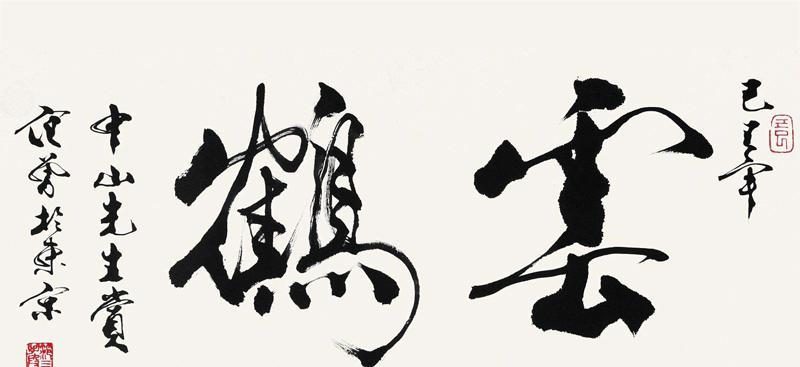 己巳年
雲鶴
中山先生賞
范曾於東京